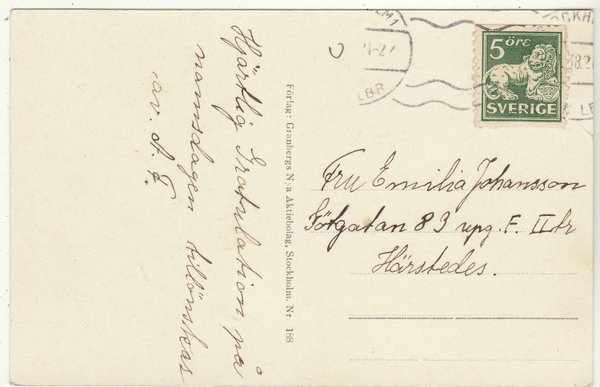 Hjärtlig Gratulation på
namnsdagen tillönskas
av. A. F.
Förlag: Granbergs Nya Aktiebolag, Stockholm. Nr. 188
5 öre
SVERIGE
LBR
Fru Emilia Johansson
Götgatan 83 upg. F. II tr
Härstedes.